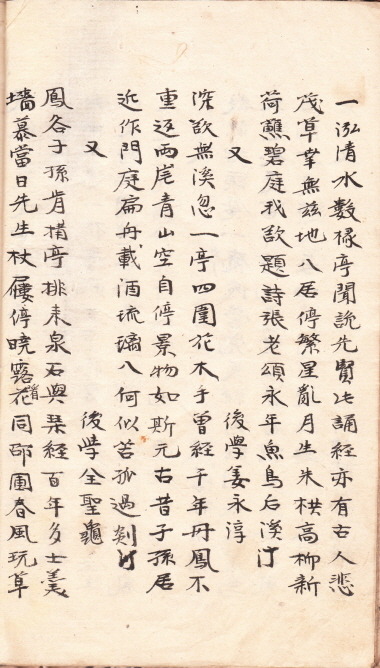 一泓清水數椽亭聞說先賢此誦經亦有古人悲
茂草業無玆地八居停繁星亂月生朱栱高柳新
荷蘸碧庭我欲題詩張老頌永年魚鳥后溪汀
又　後學姜永淳
深欲無溪忽一亭四圍花木手曾經千年丹鳳不
重返兩岸青山空自停景物如斯元古昔子孫居
近作門庭扁舟載酒琉璃八何似苦孤過剡汀
又　後學全聖龜
鳳谷子孫肯構亭排來泉石與琹經百年多士羹
墻慕當日先生杖屨停曉露階花同邵圃春風玩草